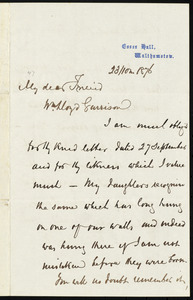 Essex Hall,
Walthamstow.
23 Nov 1876
My dear Friend
Wm Lloyd Garrison
I am much obliged
for thy kind letter dated 27 September
and for thy likeness which I value
much — My daughters recognise
the same which has long hung
on one of our walls and indeed
was hung there if I am not
mistaken before they were born
You will no doubt remember